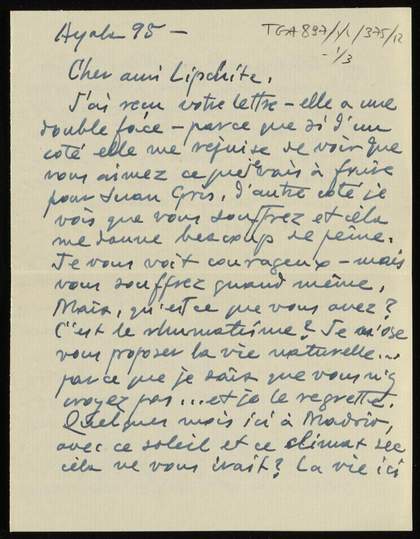 Ayala 95 —
TGA 897/1/1/375/12
- 1/3
Cher ami Lipchitz.
J'ai reçu votre lettre — elle a une
double face — parce que si d'un
coté elle me rejuise de voir que
vous aimez ce que j'avais à faire
pour Juan Gris, d'autre coté je
vois que vous souffrez et cela
me donne beaucoup de peine.
Je vous voit courageux — mais
vous souffrez quand même.
Mais, qu'est ce que vous avez?
C'est le rhumatisme? Je n'ose
vous proposer la vie naturelle...
parce que je sais que vous n'y
croyez pas... et je le regrette.
Quelques mois ici à Madrid,
avec ce soleil et ce climat sec
cela ne vous irait? La vie ici